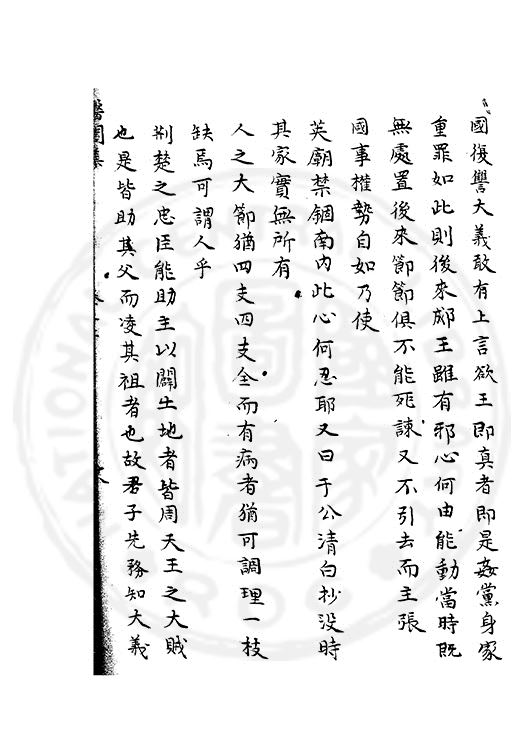 國復讐大義敢有上言欲王即真者即是姦黨身家
重罪如此則後來郕王雖有邪心何由能動當時既
無處置後來節節俱不能死諫又不引去而主張
國事權勢自如乃使
英廟禁錮南內此心何忍耶又曰于公清白抄没時
其家實無所有
人之大節猶四支四支全而有病者猶可調理一枝
缺焉可謂人乎
荆楚之忠臣能助主以闢土地者皆周天王之大賊
也是皆助其父而凌其祖者也故君子先務知大義